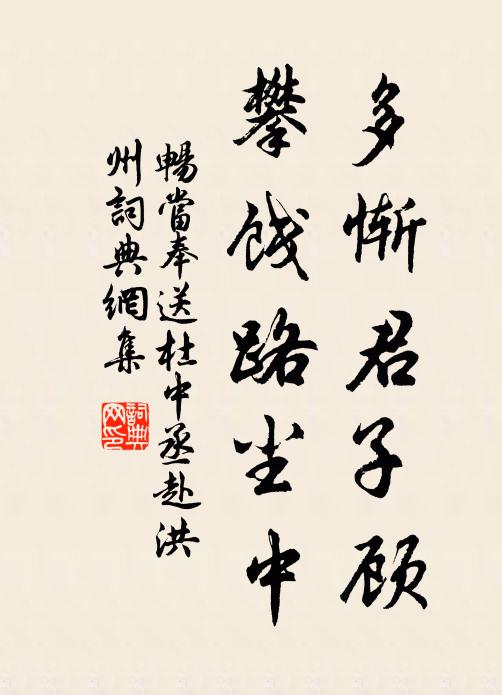 多惭君子顾
攀饯路尘中
暢當奉送杜中丞赴洪
州詞典網集
詞典网印